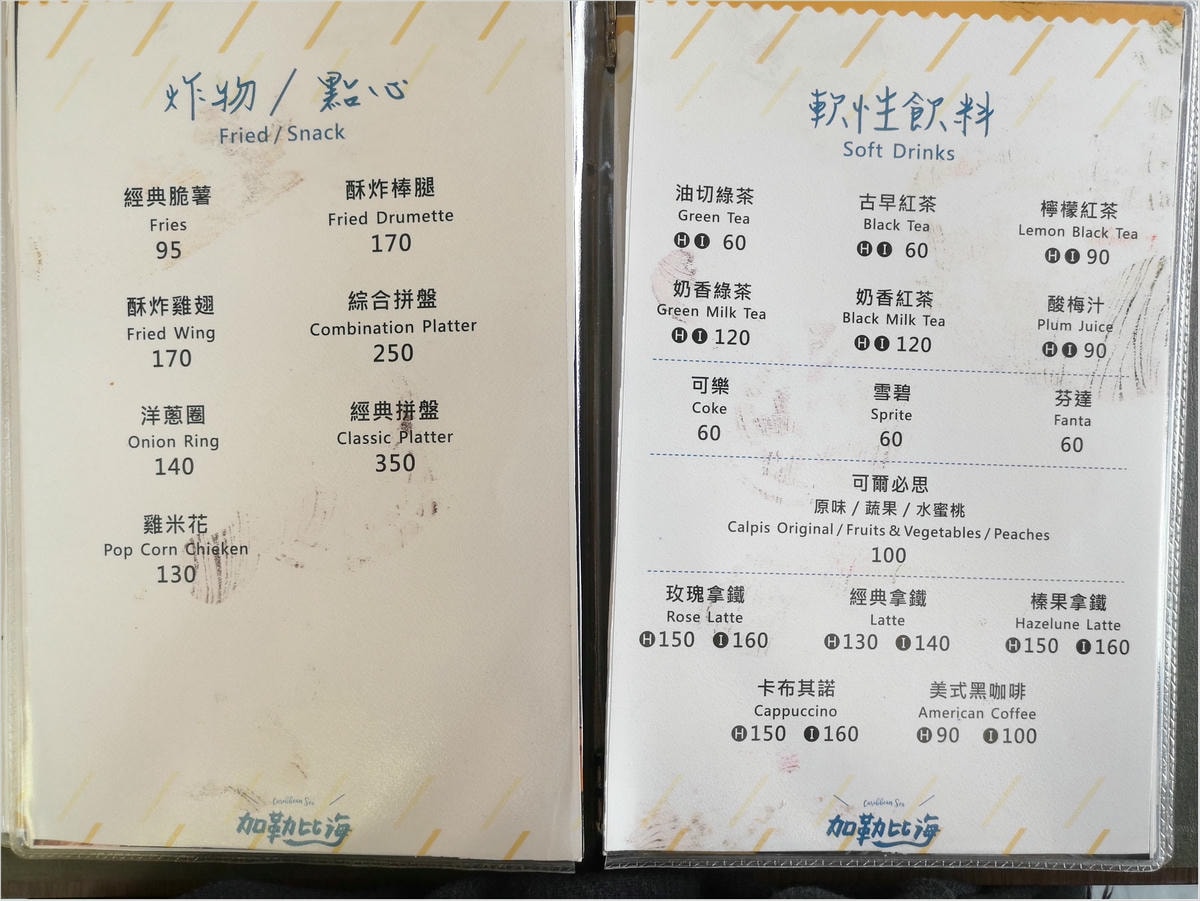 炸物 / 點心
Fried / Snack
經典脆薯
Fries
95
酥炸棒腿
Fried Drumette
170
酥炸雞翅
Fried Wing
170
綜合拼盤
Combination Platter
250
洋蔥圈
Onion Ring
140
經典拼盤
Classic Platter
350
雞米花
Pop Corn Chieken
130
Caribbean Sea
加勒比海
軟性飲料
Soft Drinks
油切綠茶
Green Tea
H I 60
古早紅茶
Black Tea
H I 60
檸檬紅茶
Lemon Black Tea
H I 90
奶香綠茶
Green Milk Tea
H I 120
奶香紅茶
Black Milk Tea
H I 120
酸梅汁
Plum Juice
H I 90
可樂
Coke
60
雪碧
Sprite
60
芬達
Fanta
60
可爾必思
原味 / 蔬果 / 水蜜桃
Calpis Original / Fruits & Vegetables / Peaches
100
玫瑰拿鐵
Rose Latte
H 150 I 160
經典拿鐵
Latte
H 130 I 140
榛果拿鐵
Hazelune Latte
H 150 I 160
卡布其諾
Cappuccino
H 150 I 160
美式黑咖啡
American Coffee
H 90 I 100
Caribbean Sea
加勒比海